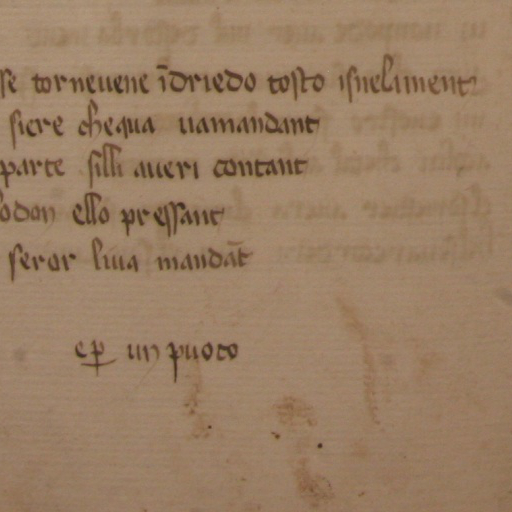 se tornevene īdriedo tosto isneliment
sicre chequa uamandant
parte silli aueri contant
odon ello pressant
seror liua mandāt
ep̱ un puoco